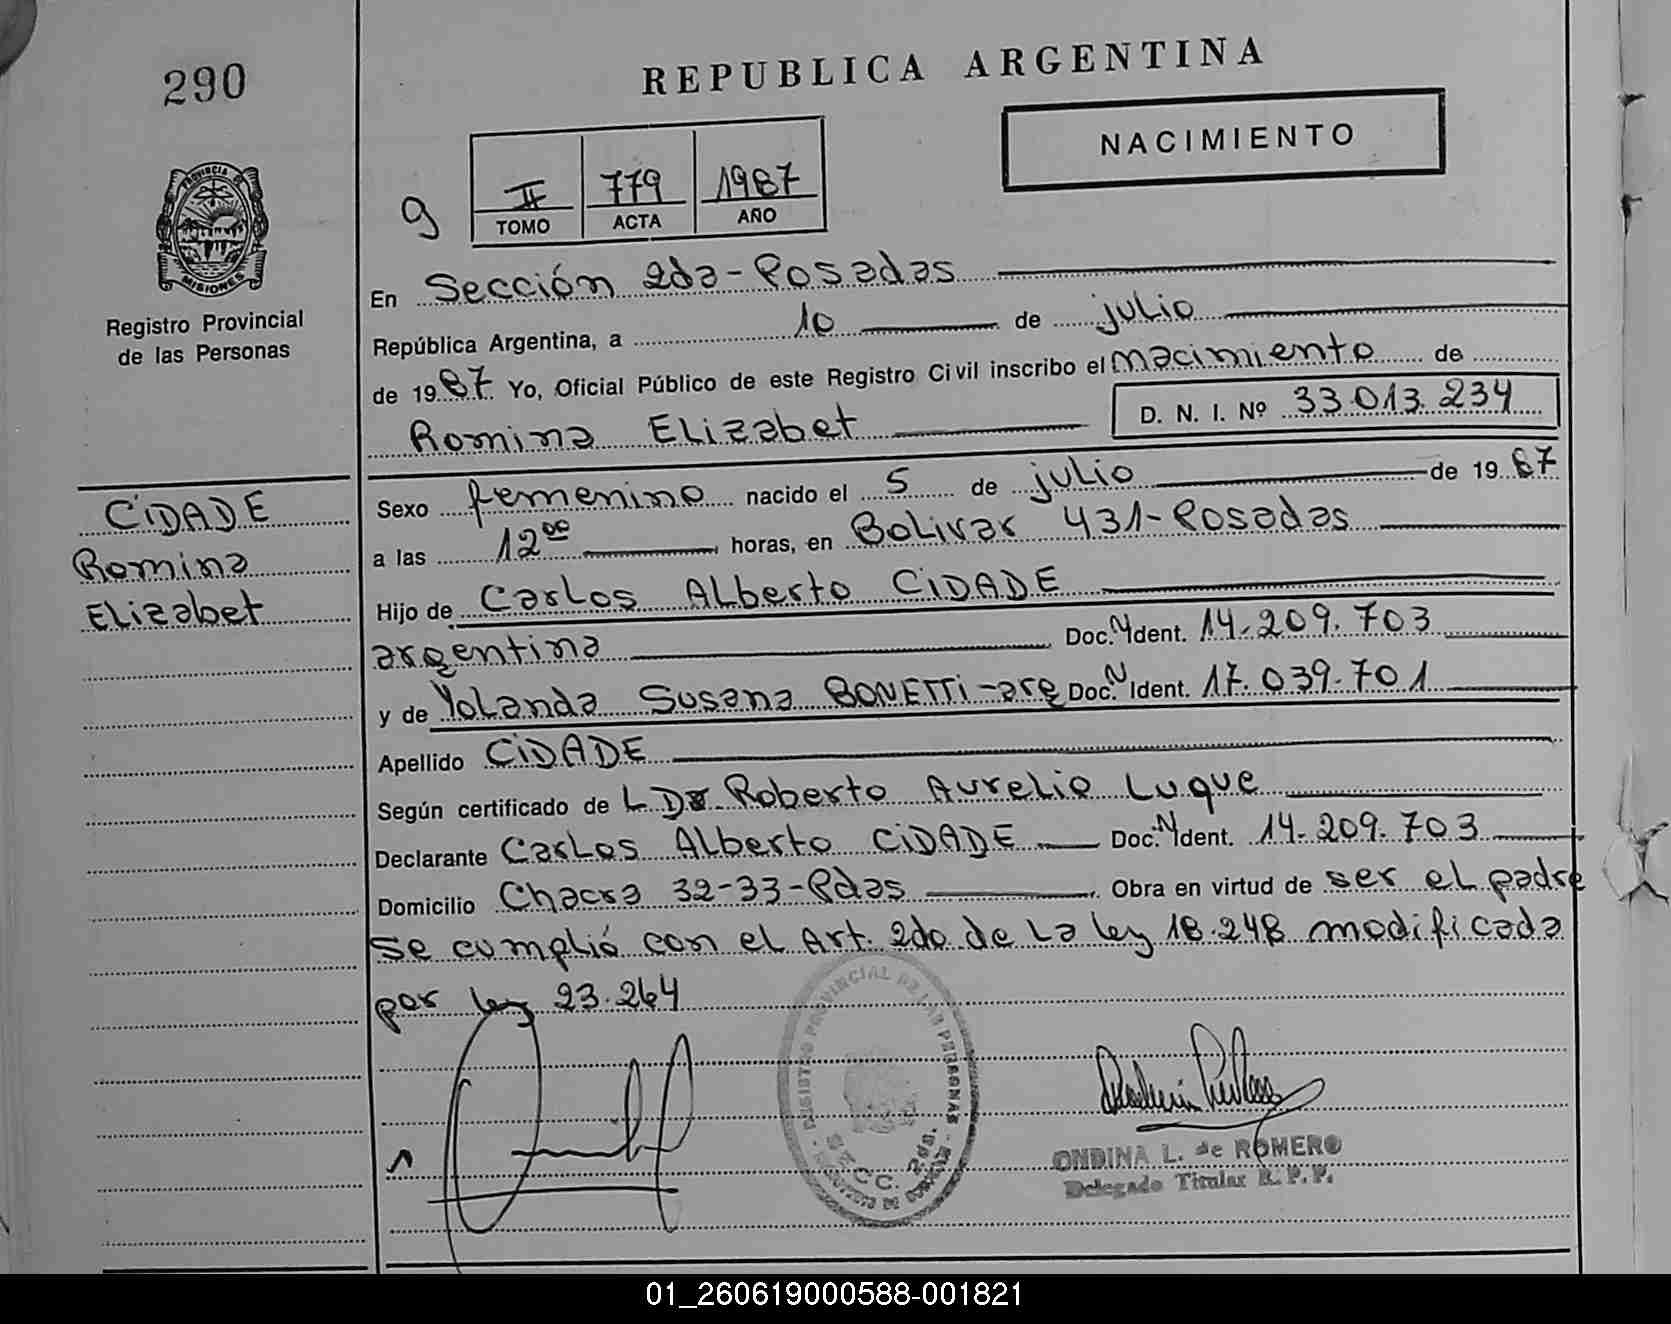 290
REPUBLICA ARGENTINA
NACIMIENTO
9
II 779 1987
TOMO ACTA AÑO
PROVINCIA DE MISIONES
Registro Provincial
de las Personas
En Sección 2da - Posadas
República Argentina, a 10 de julio
de 1987 Yo, Oficial Público de este Registro Civil inscribo el nacimiento de
Romina Elizabet D. N. I. Nº 33.013.234
CIDADE
Romina
Elizabet
Sexo femenino nacido el 5 de julio de 1987
a las 12 00 horas, en Bolivar 431 - Posadas
Hijo de Carlos Alberto CIDADE
argentina Doc. N Ident. 14.209.703
y de Yolanda Susana BONETTI - arg Doc. N Ident. 17.039.701
Apellido CIDADE
Según certificado de L Dr. Roberto Aurelio Luque
Declarante Carlos Alberto CIDADE Doc. N Ident. 14.209.703
Domicilio Chacra 32-33 - Pdas Obra en virtud de ser el padre
se cumplió con el Art. 2do de la ley 18.248 modificada
por ley 23.264
REGISTRO PROVINCIAL DE LAS PERSONAS
SECC. 2da.
ONDINA L. de ROMERO
Delegado Titular R. P. P.
01_260619000588-001821